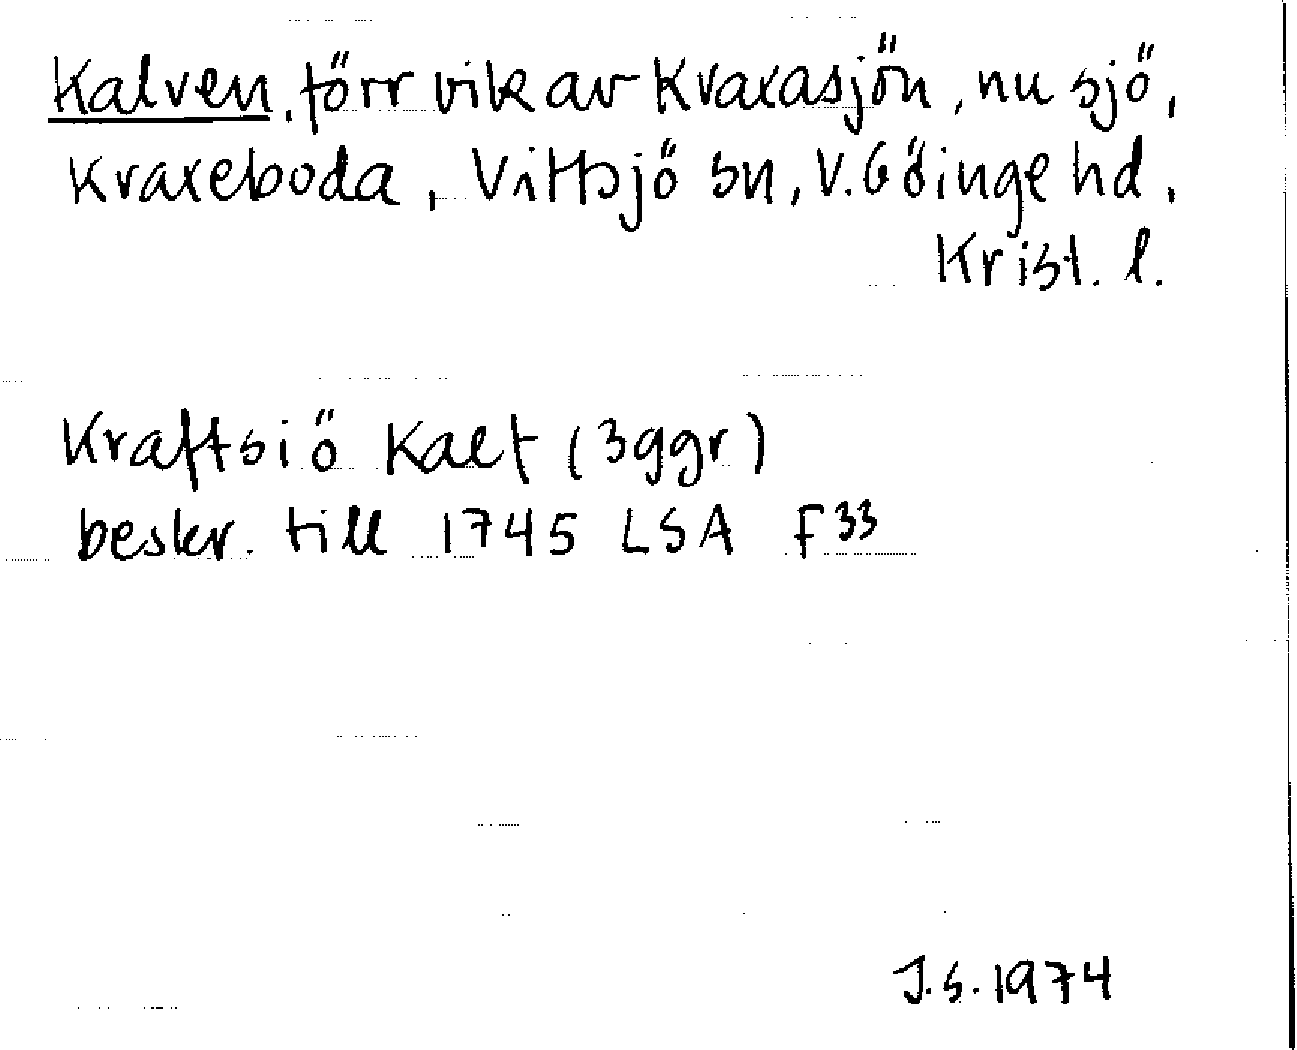 Kalven, förr vik av Kraxasjön, nu sjö,
Kraxeboda, Vittsjö sn, V. Göinge hd,
Krist. l.
Kraftsiö Kalf (3 ggr)
beskr. till 1745 LSA F33
J.S. 1974